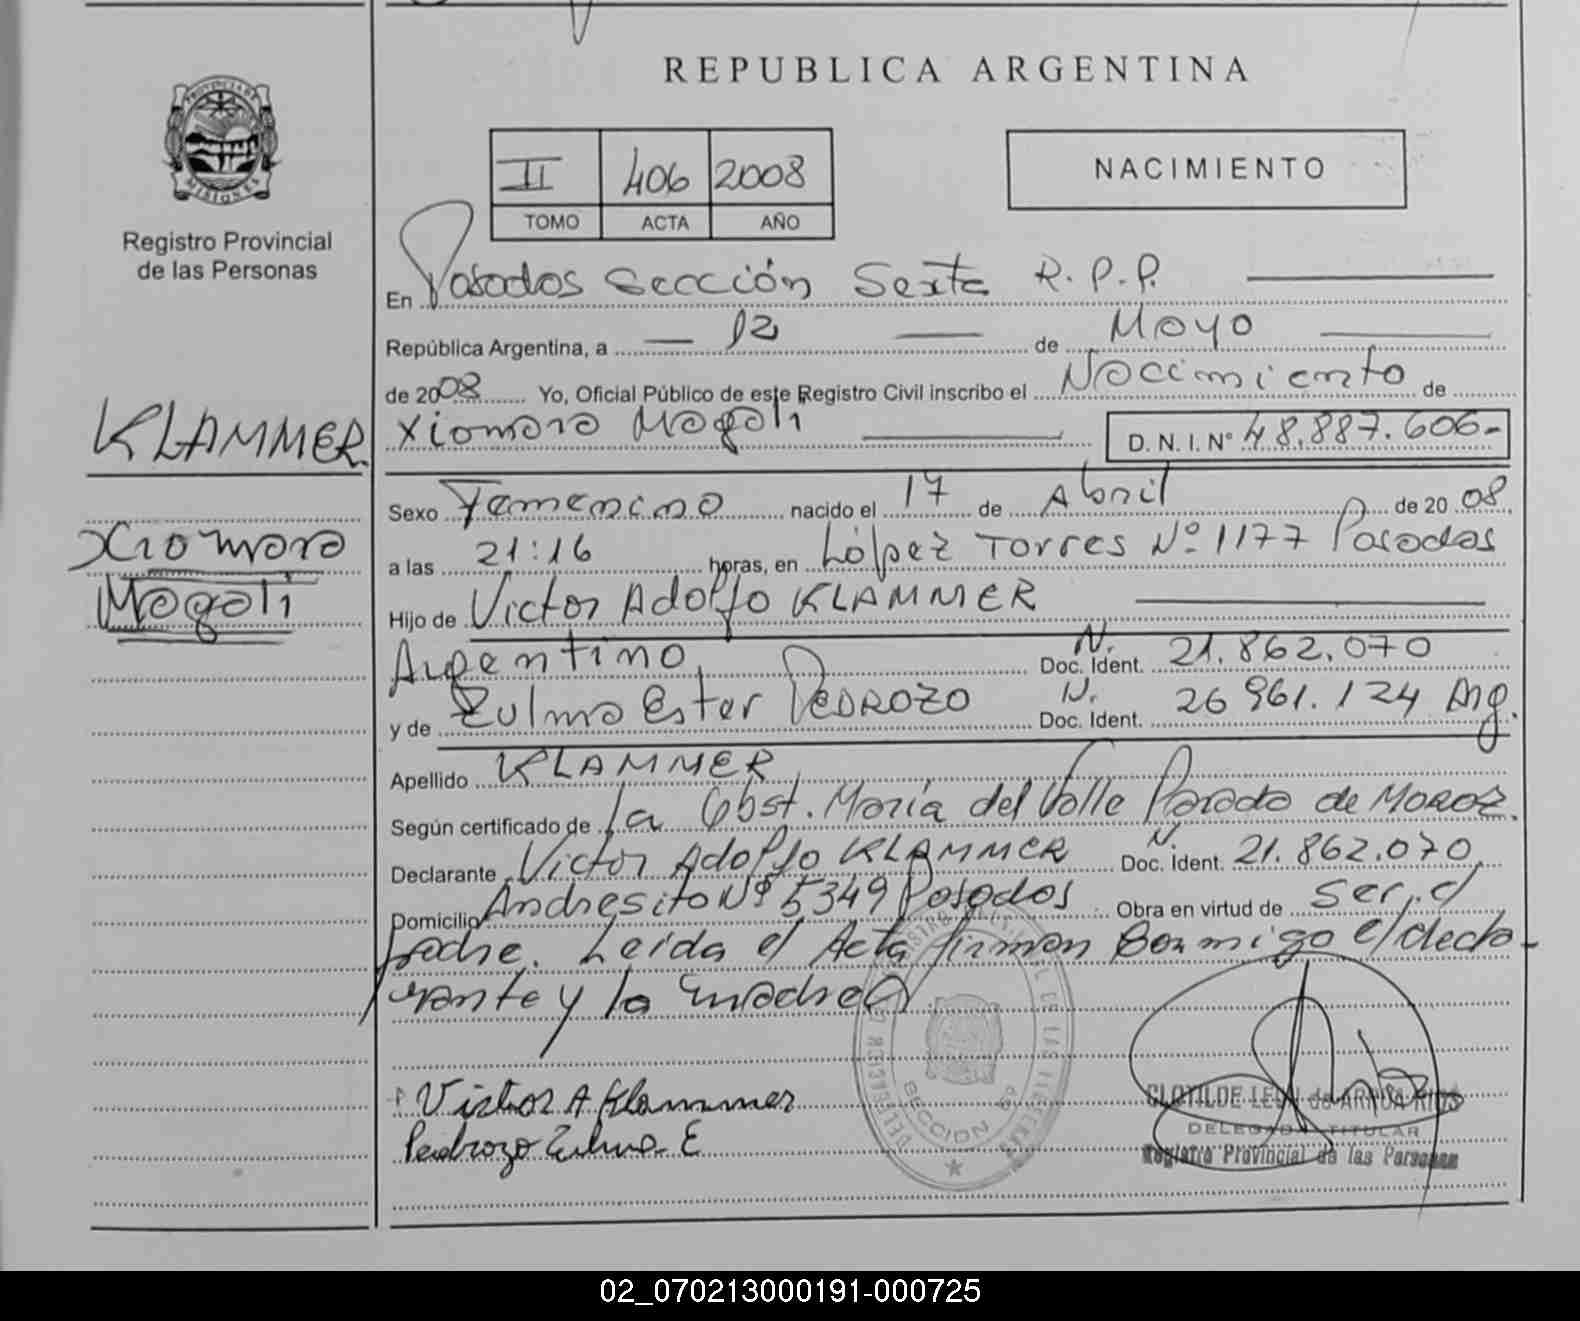 REPUBLICA ARGENTINA
PROVINCIA DE
MISIONES
Registro Provincial
de las Personas
II 406 2008
TOMO ACTA AÑO
NACIMIENTO
En Posadas Sección Sexta R.P.P.
República Argentina, a 12 de Mayo
de 2008 Yo, Oficial Público de este Registro Civil inscribo el Nacimiento de
KLAMMER
Xiomara Magali D. N. I. N° 48.887.606-
Sexo Femenino nacido el 17 de Abril de 2008
Xiomara
a las 21:16 horas, en López Torres Nº 1177 Posadas
Magali
Hijo de Victor Adolfo KLAMMER
Argentino Doc. Ident. N. 21.862.070
y de Zulma Ester PEDROZO Doc. Ident. N. 26 961.124 Arg.
Apellido KLAMMER
Según certificado de la Obst. María del Valle Parada de MOROZ.
Declarante Victor Adolfo KLAMMER Doc. Ident. N. 21.862.070
Domicilio Andresito Nº 5349 Posadas Obra en virtud de ser el
padre. Leída el Acta firman conmigo el decla-
rante y la madre
Victor A Klammer
Pedrozo Zulma E
SECCION 6º
CLOTILDE LEON de ARRUA RIOS
DELEGADA TITULAR
Registro Provincial de las Personas
02_070213000191-000725